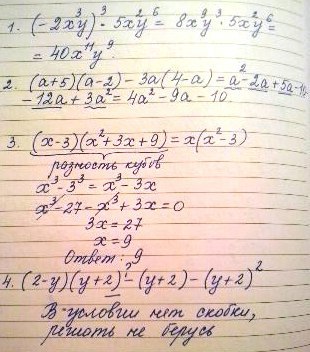 1. (-2x³y)³ · 5x²y⁶ = 8x⁹y³ · 5x²y⁶ =
= 40x¹¹y⁹.
2. (a+5)(a-2) - 3a(4-a) = a² - 2a + 5a - 10
- 12a + 3a² = 4a² - 9a - 10
3. (x-3)(x²+3x+9) = x(x²-3)
разность кубов
x³ - 3³ = x³ - 3x
x³ - 27 - x³ + 3x = 0
3x = 27
x = 9
Ответ: 9
4. (2-y)(y+2)² - (y+2) - (y+2)²
В условии нет скобки,
решать не берусь